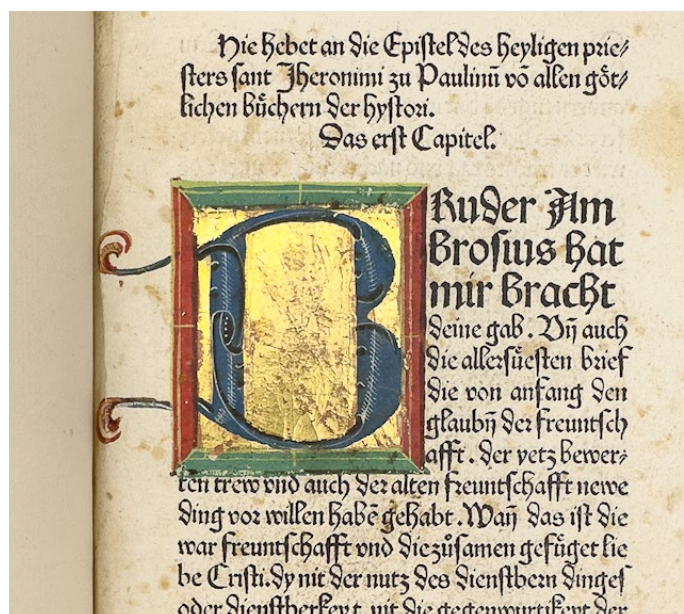 Hie hebet an die Epistel des heyligen prie⸗
sters sant Jheronimi zu Paulinū vō allen gͤt⸗
lichen bͤchern der hystori.
Das erst Capitel.
BRuder Am
brosius hat
mir bracht
deine gab. Vn̄ auch
die allersuͤesten brief
die von anfang den
glaubn̄ der freuntsch
afft. der yetz bewer⸗
ten trew vnd auch der alten freuntschafft newe
ding vor willen habē gehabt. Wan̄ das ist die
war freuntschafft vnd die zůsamen gefüget lie
be Cristi. dy nit der nutz des dienstbern dinges
oder dienstberkeyt nit die gegenwurtikeyt der